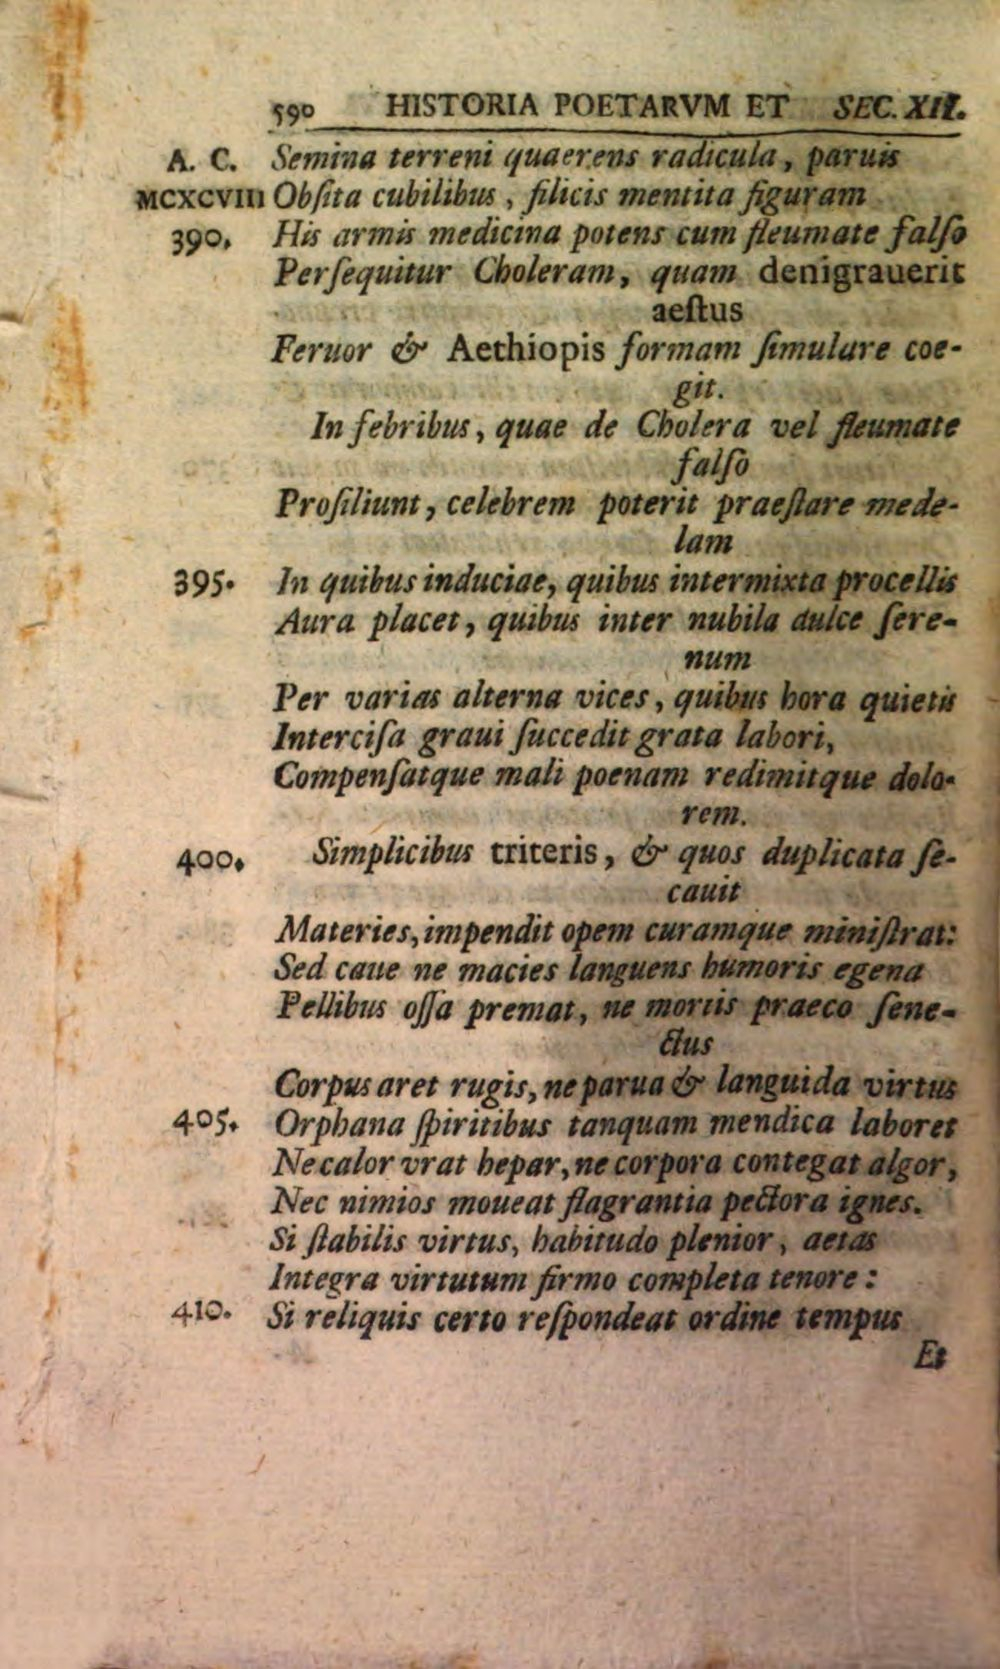 590 HISTORIA POETARVM ET SEC. XII.
A. C. Semina terreni quaerens radicula, paruis
MCXCVIII Obſita cubilibus, filicis mentita figuram
390. His armis medicina potens cum fleumate falſo
Perſequitur Choleram, quam denigrauerit
aeſtus
Feruor & Aethiopis formam ſimulare coe-
git.
In febribus, quae de Cholera vel fleumate
falſo
Proſiliunt, celebrem poterit praeſtare mede-
lam
395. In quibus induciae, quibus intermixta procellis
Aura placet, quibus inter nubila dulce ſere-
num
Per varias alterna vices, quibus hora quietis
Interciſa graui ſuccedit grata labori,
Compenſatque mali poenam redimitque dolo-
rem.
400. Simplicibus triteris, & quos duplicata ſe-
cauit
Materies, impendit opem curamque miniſtrat:
Sed caue ne macies languens humoris egena
Pellibus oſſa premat, ne mortis praeco ſene-
ctus
Corpus aret rugis, ne parua & languida virtus
405. Orphana ſpiritibus tanquam mendica laboret
Ne calor vrat hepar, ne corpora contegat algor,
Nec nimios moueat flagrantia pectora ignes.
Si ſtabilis virtus, habitudo plenior, aetas
Integra virtutum firmo completa tenore:
410. Si reliquis certo reſpondeat ordine tempus
Et